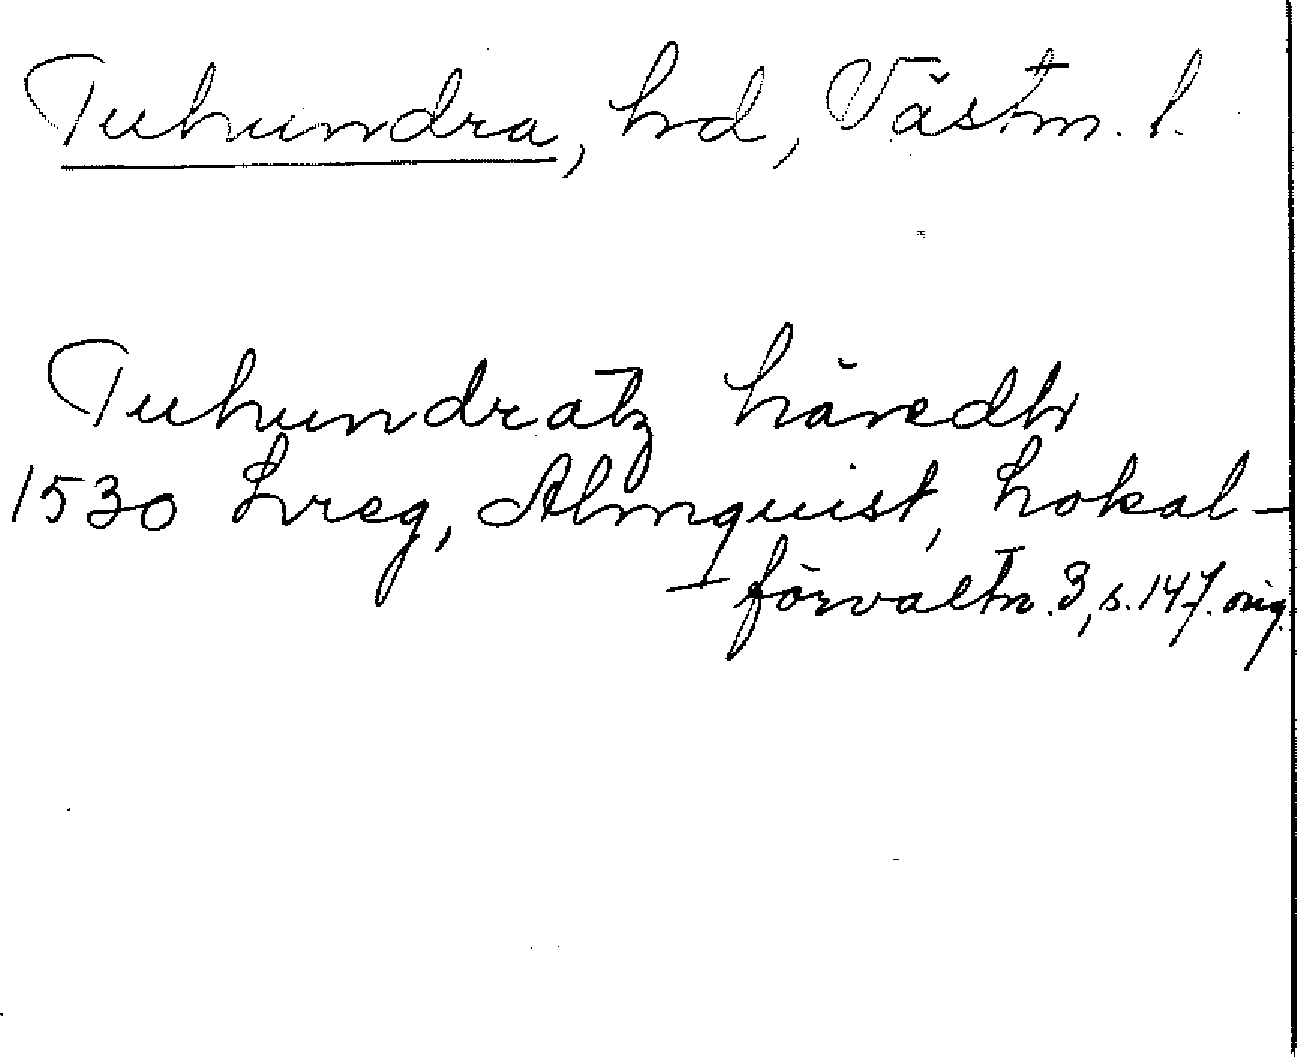 Tuhundra, hd, Västm. l.
Tuhundratz häredh
1530 Lreg, Almquist, Lokal-
förvaltn. 3, s. 147. orig.